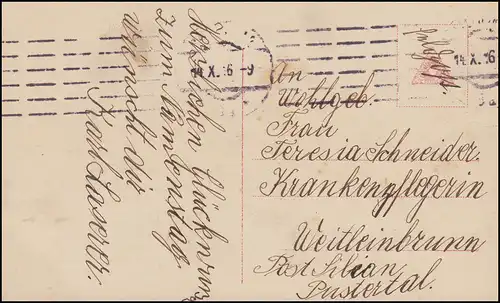 Herzlichen Glückwunsch
zum Namenstag
wünscht die
Karl Laserer.
14.X.16-9
Feldpost
14.X.16
An
Wohlgeb.
Frau
Teresia Schneider.
Krankenpflegerin
Weitleinbrunn
Post Silian
Pustertal.